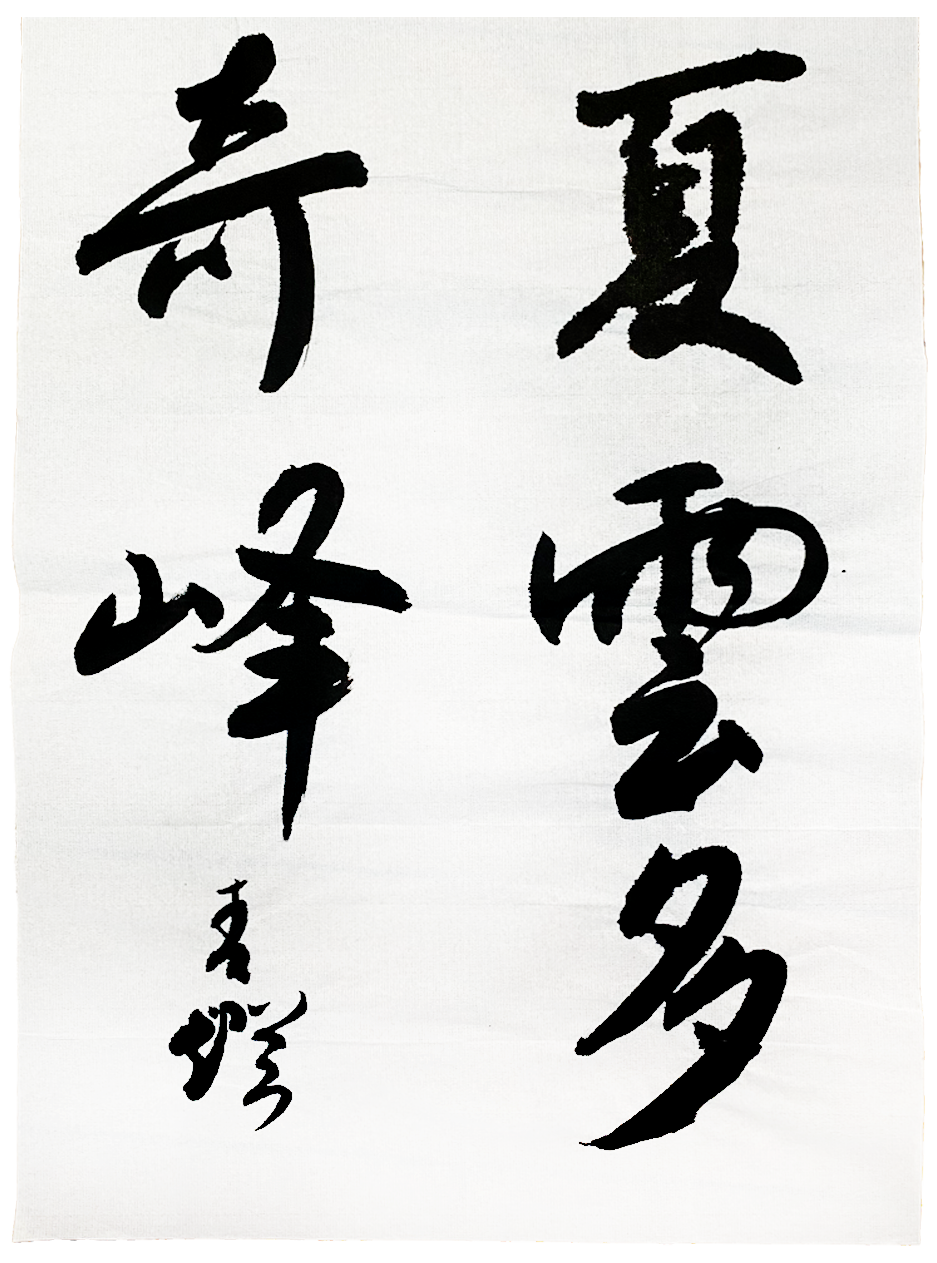 夏雲多
奇峰
青